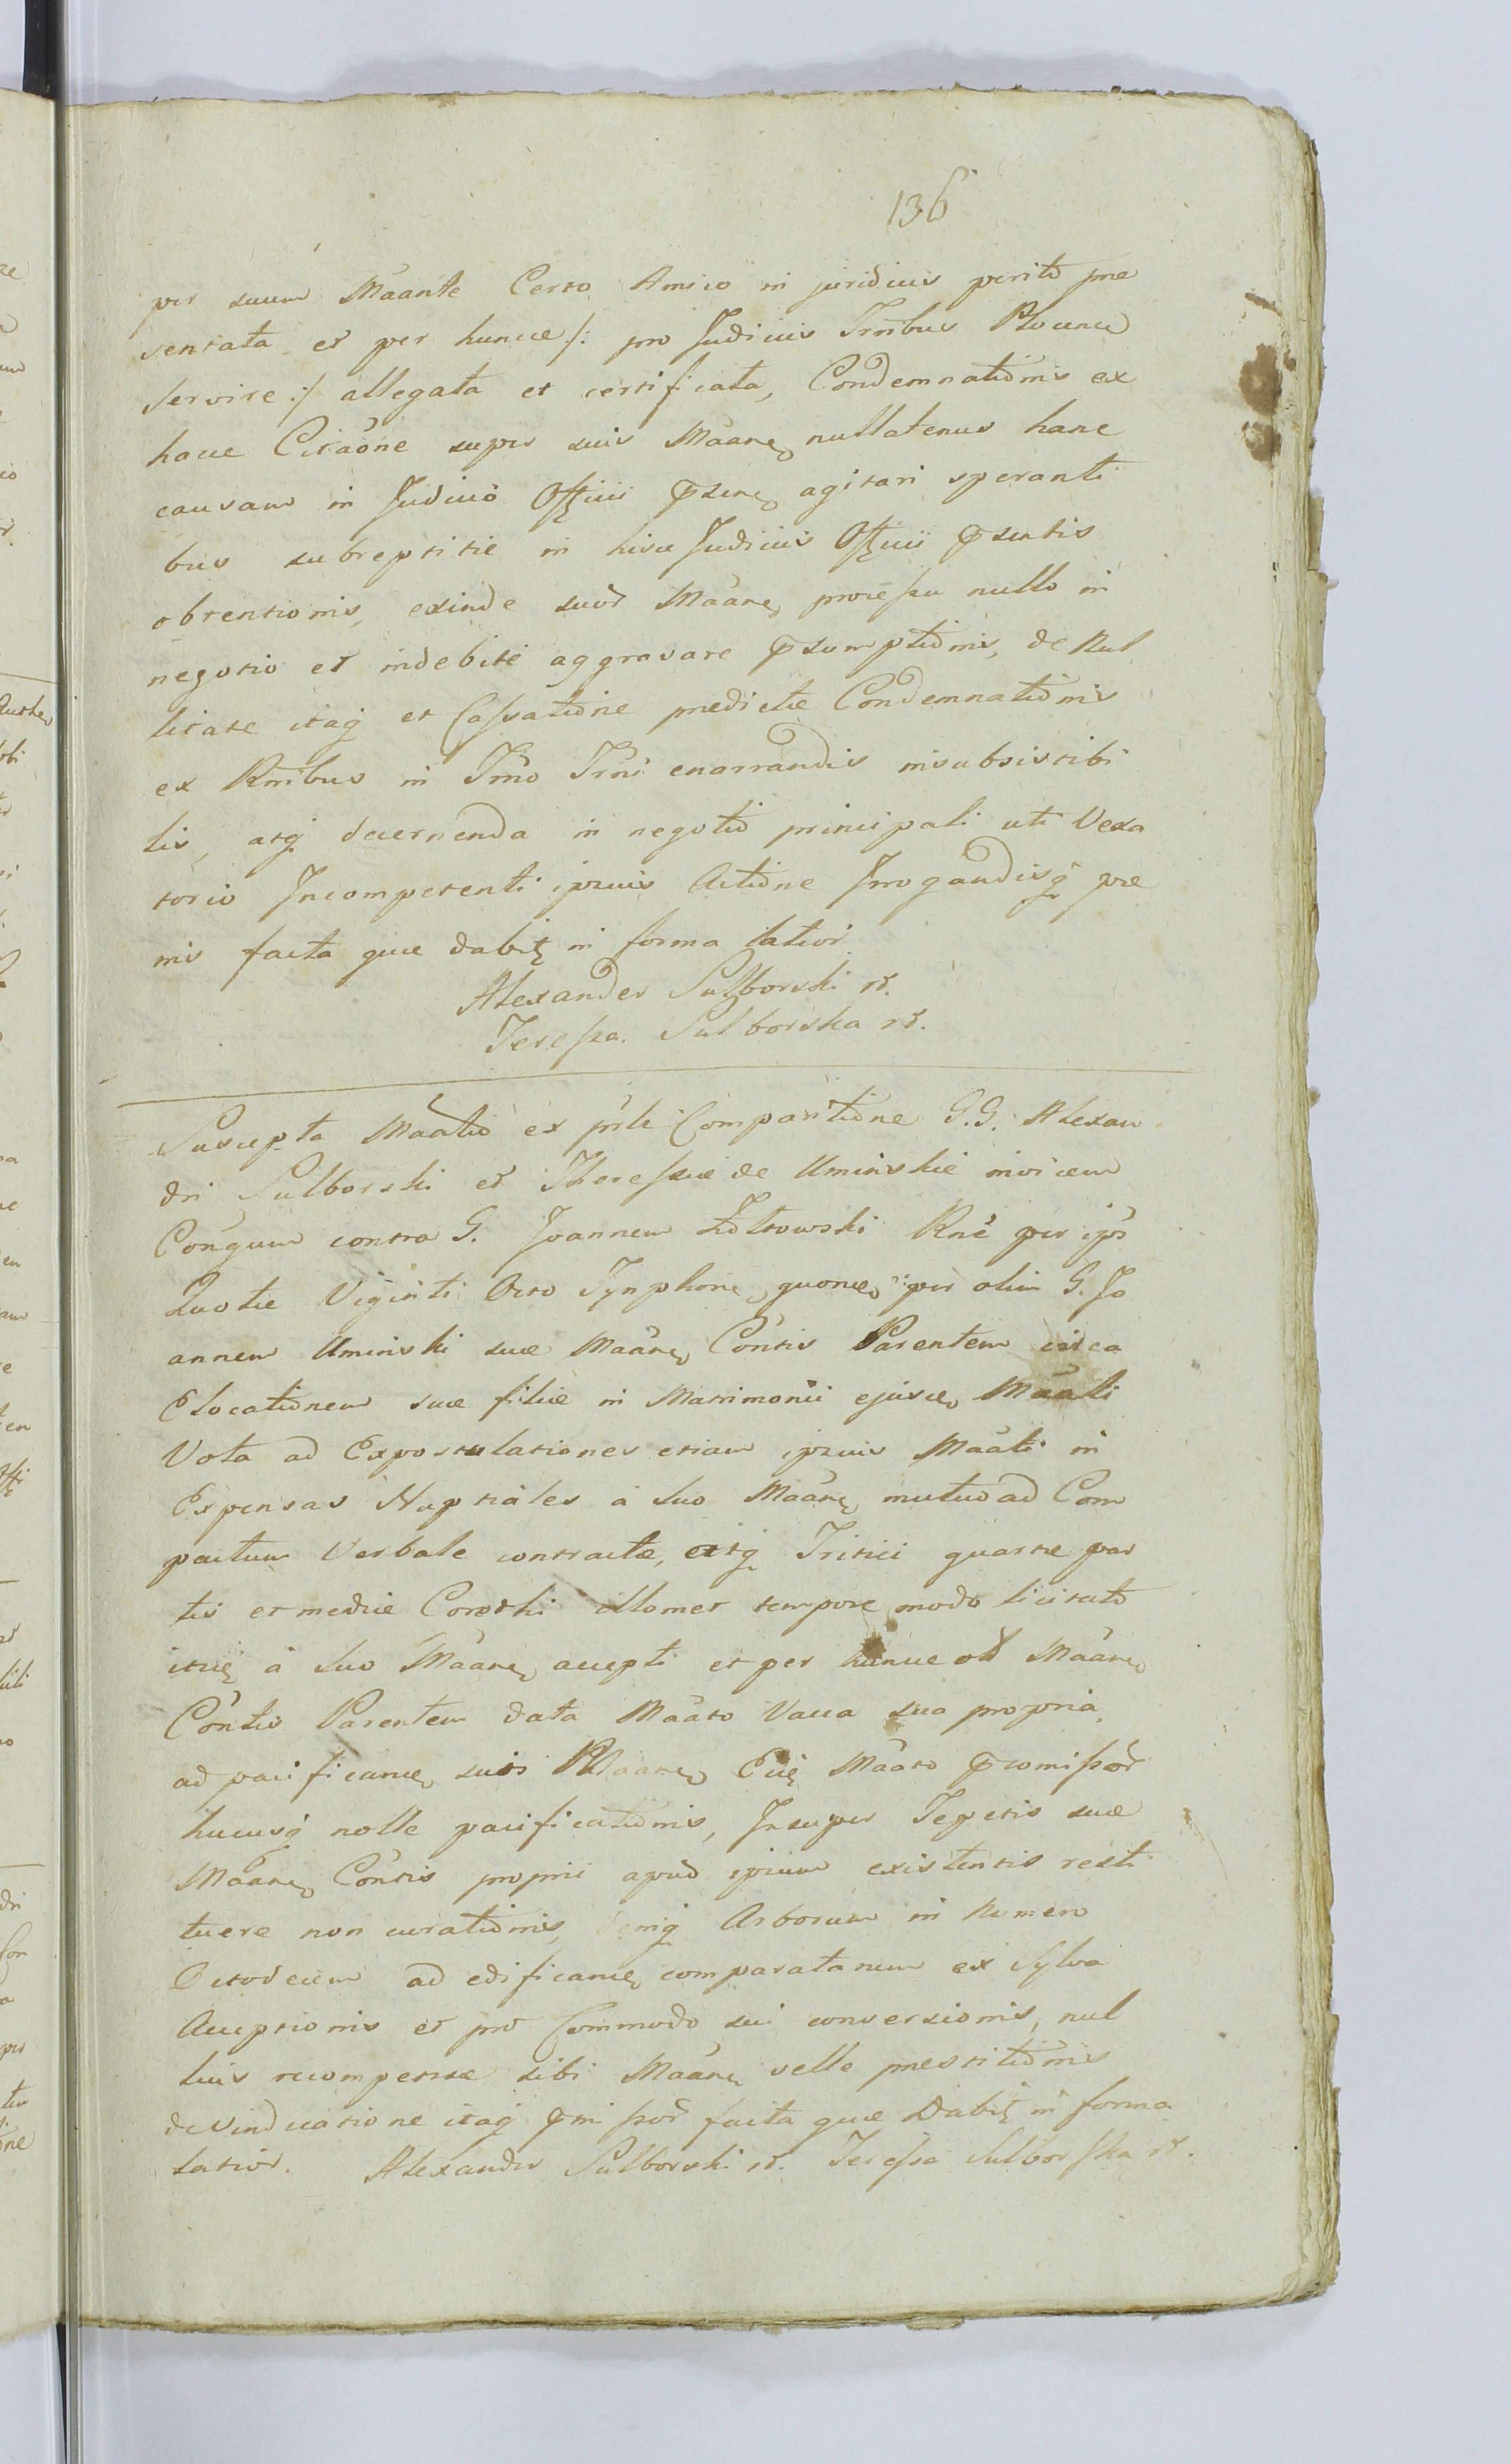 136
per suum Mãante Certo Amico in juridicis perito prae
sentata et per huncce /: pro Judiciis Trnibus Plocen
servire :/ allegata et certificata, Condemnationis ex
hacce Citãone super suis Mãan nullatenus hanc
causam in Judicio Officii agitari speranti
bus subreptitie in hisce Judiciis Officii
obtentionis, exinde suor Mãan processu nullo in
negotio et indebité aggravare, de Nul
litate itaq et Cassatione predictae Condemnationis
ex Rnibus in Tmo Trni enarrandis insubsistibi
lis, atq decernenda in negotio principali uti Vexa
torio Incompetenti ipsius Actione Irrogandisq poe
nis facta quae dabit in forma latior
Alexander Sulborski
Teressa Sulborska
Suscepta Mãatio ex prle Comparitione G.G. Alexan
dri Sulborski et Theressiae de Uminskie invicem
Conqum contra G. Joannem Żołtowski Rne per ips
Quotae Viginti Octo Tynphon, quonc per olim G. Jo
annem Uminski suae Mãan Contis Parentem circa
Elocationem suae filiae in Matrimonii ejusce Mãati
Vota ad Expostulationes etiam ipsius Mãati in
Expensas Nuptiales á Suo Mãan mutuo ad Com
pactum Verbale contractae, Tritici quartae par
tis et mediae illomet tempore modo licitato
á Suo Mãan accepti et per huncce ob Mãan
Contis Parentem data Mãato Vacca sua propria
ad pacificanc suos Mãan Mãato
hucusq nolle pacificationis, Insuper Tepetis suae
Mãan Contis proprii apud ipsum existentis resti
tuere non curationis, deniq Arborum in numero
Octodecim ad edificanc comparatarum ex sylva
Acceptionis et pro Commodo sui conversionis, nul
lius recompensae sibi Mãan velle prestitionis
de Vindicatione itaq facta quae Dabit in forma
latior. Alexander Sulborski Teressa Sulborska